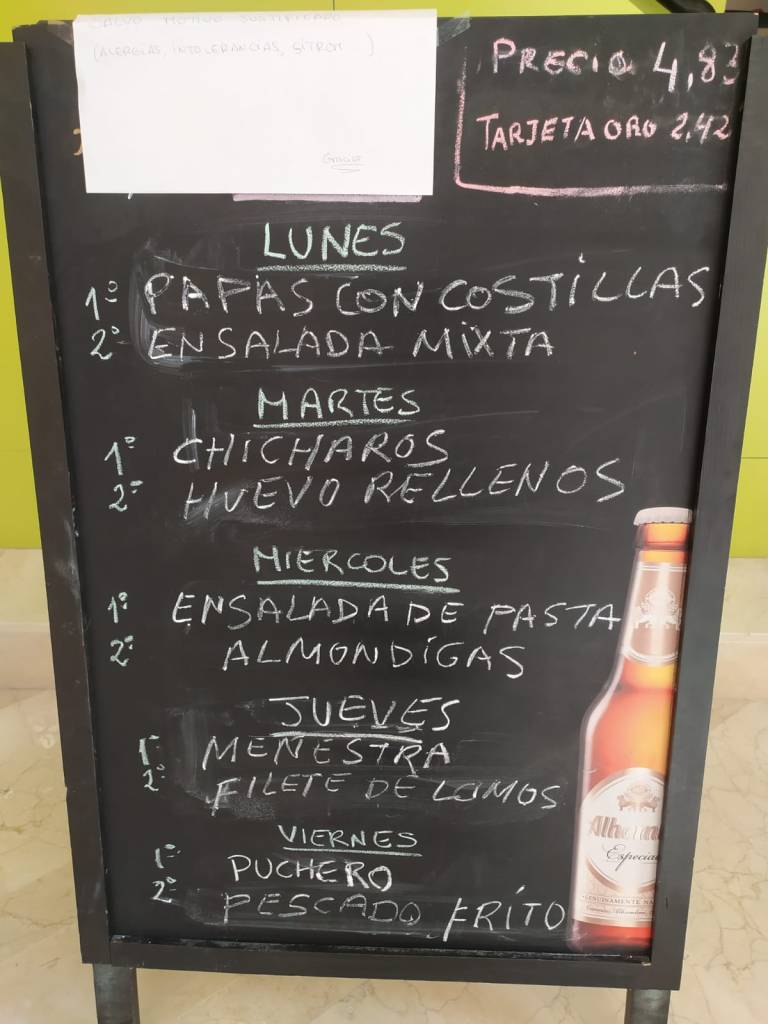 SALVO MOTIVO JUSTIFICADO
(ALERGIAS, INTOLERANCIAS, SITROM )
Gracias
PRECIO 4,83
TARJETA ORO 2,42
LUNES
1º PAPAS CON COSTILLAS
2º ENSALADA MIXTA
MARTES
1º CHICHAROS
2º HUEVO RELLENOS
MIERCOLES
1º ENSALADA DE PASTA
2º ALMONDIGAS
JUEVES
1º MENESTRA
2º FILETE DE LOMOS
VIERNES
1º PUCHERO
2º PESCADO FRITO
Especial